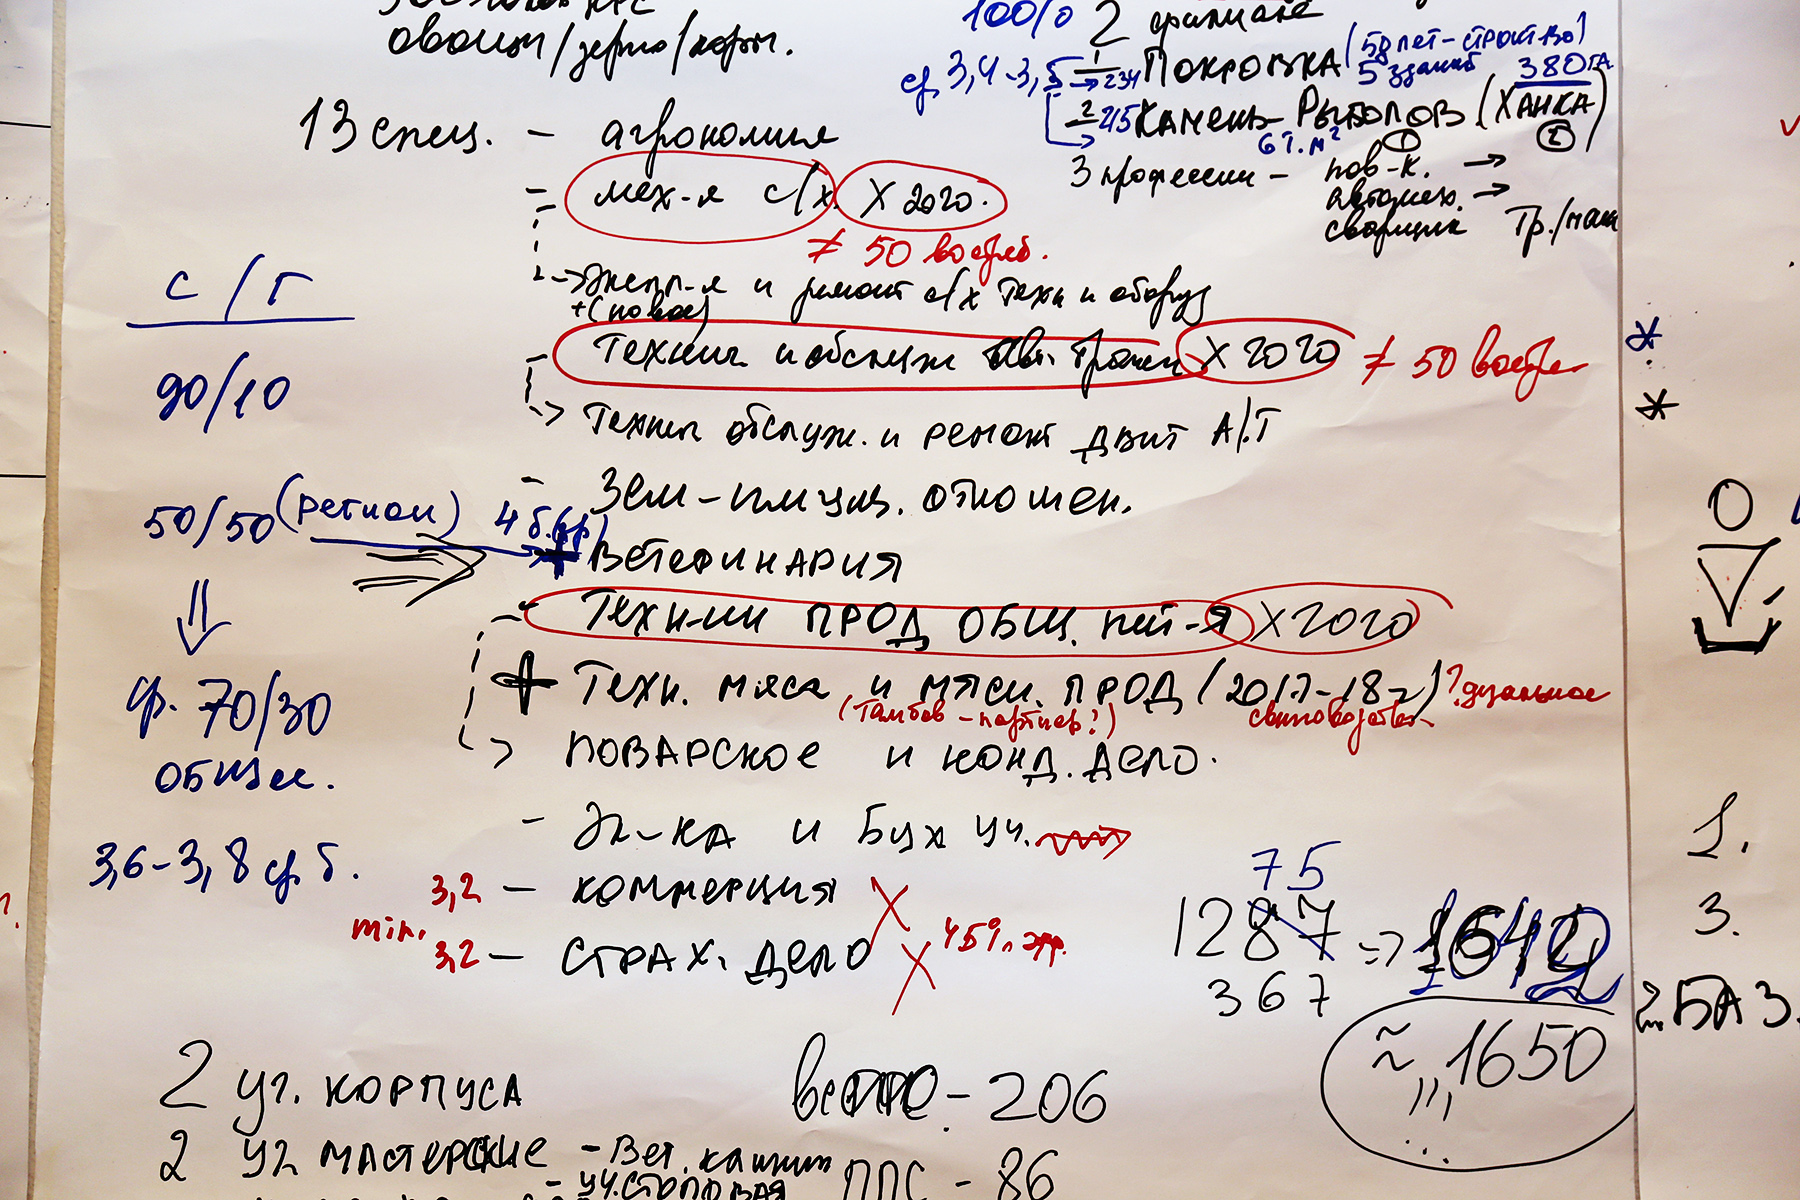 овощи/зерно/корм.
100% 2 филиала
ср. 3,4-3,5 1 → 234 Покровка (58 лет-строит-во)
5 зданий 380 га
2 → 215 Камень-Рыболов (Ханка)
6 т. м² 1 2
13 спец. - агрономия
3 профессии - пов-к. →
автомех. →
сварщик Тр./маш
- мех-я с/х. X 2020.
≠ 50 востреб.
с/г
--> Экспл-я и ремонт с/х Техн и оборуд
+(новое)
- Технич и обслуж авт. Транси X 2020 ≠ 50 востр.
90/10
--> Технич обслуж. и ремонт двиг А/Т
- Зем-имущ. отношен.
50/50 (регион) 4 б.(ср)
+ ветеринария
- Техн-ии ПРОД ОБЩ. пит-я X 2020
ср. 70/30
общее.
+ Техн. мяса и мясн. ПРОД (2017-18г)? дуальное
(Тамбов-партнер?) свиноводство
-> поварское и конд. дело.
- Эк-ка и Бух уч.
3,6-3,8 ср б.
3,2 - коммерция X
min.
3,2 - СТРАХ. ДЕЛО X 45% тр.
75
1287 => 1642
367
≈ 1650
1.
3.
2. БАЗ.
2 уч. корпуса
всего - 206
2 уч мастерские - Вет. клиник
- уч. столовая
ППС - 86